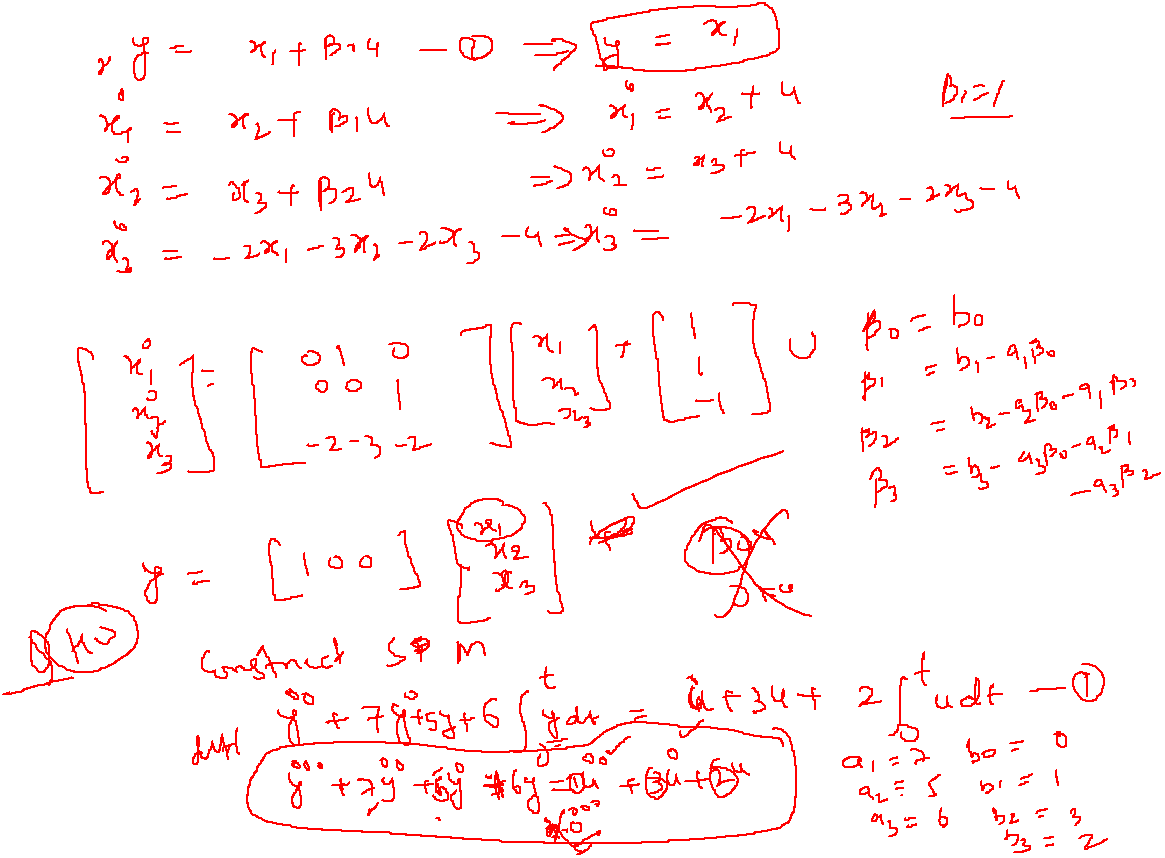 y = x₁ + β₀u — ① ⇒ y = x₁
ẋ₁ = x₂ + β₁u ⇒ ẋ₁ = x₂ + u β₁=1
ẋ₂ = x₃ + β₂u ⇒ ẋ₂ = x₃ + u
ẋ₃ = -2x₁ - 3x₂ - 2x₃ - u ⇒ ẋ₃ = -2x₁ - 3x₂ - 2x₃ - u
[ẋ₁ ẋ₂ ẋ₃] = [0 1 0 0 0 1 -2 -3 -2] [x₁ x₂ x₃] + [1 1 -1] U
β₀ = b₀
β₁ = b₁ - a₁β₀
β₂ = b₂ - a₂β₀ - a₁β₁
β₃ = b₃ - a₃β₀ - a₂β₁ - a₃β₂
y = [1 0 0] [x₁ x₂ x₃]
Q HW
Construct S M
ÿ + 7ẏ + 5y + 6 ∫ᵗ y dt = u̇ + 3u + 2 ∫₀ᵗ u dt — ①
diff
y⃛ + 7ÿ + 5ẏ + 6y = ①ü + ③u̇ + ②u
a₁ = 7 b₀ = 0
a₂ = 5 b₁ = 1
a₃ = 6 b₂ = 3
b₃ = 2